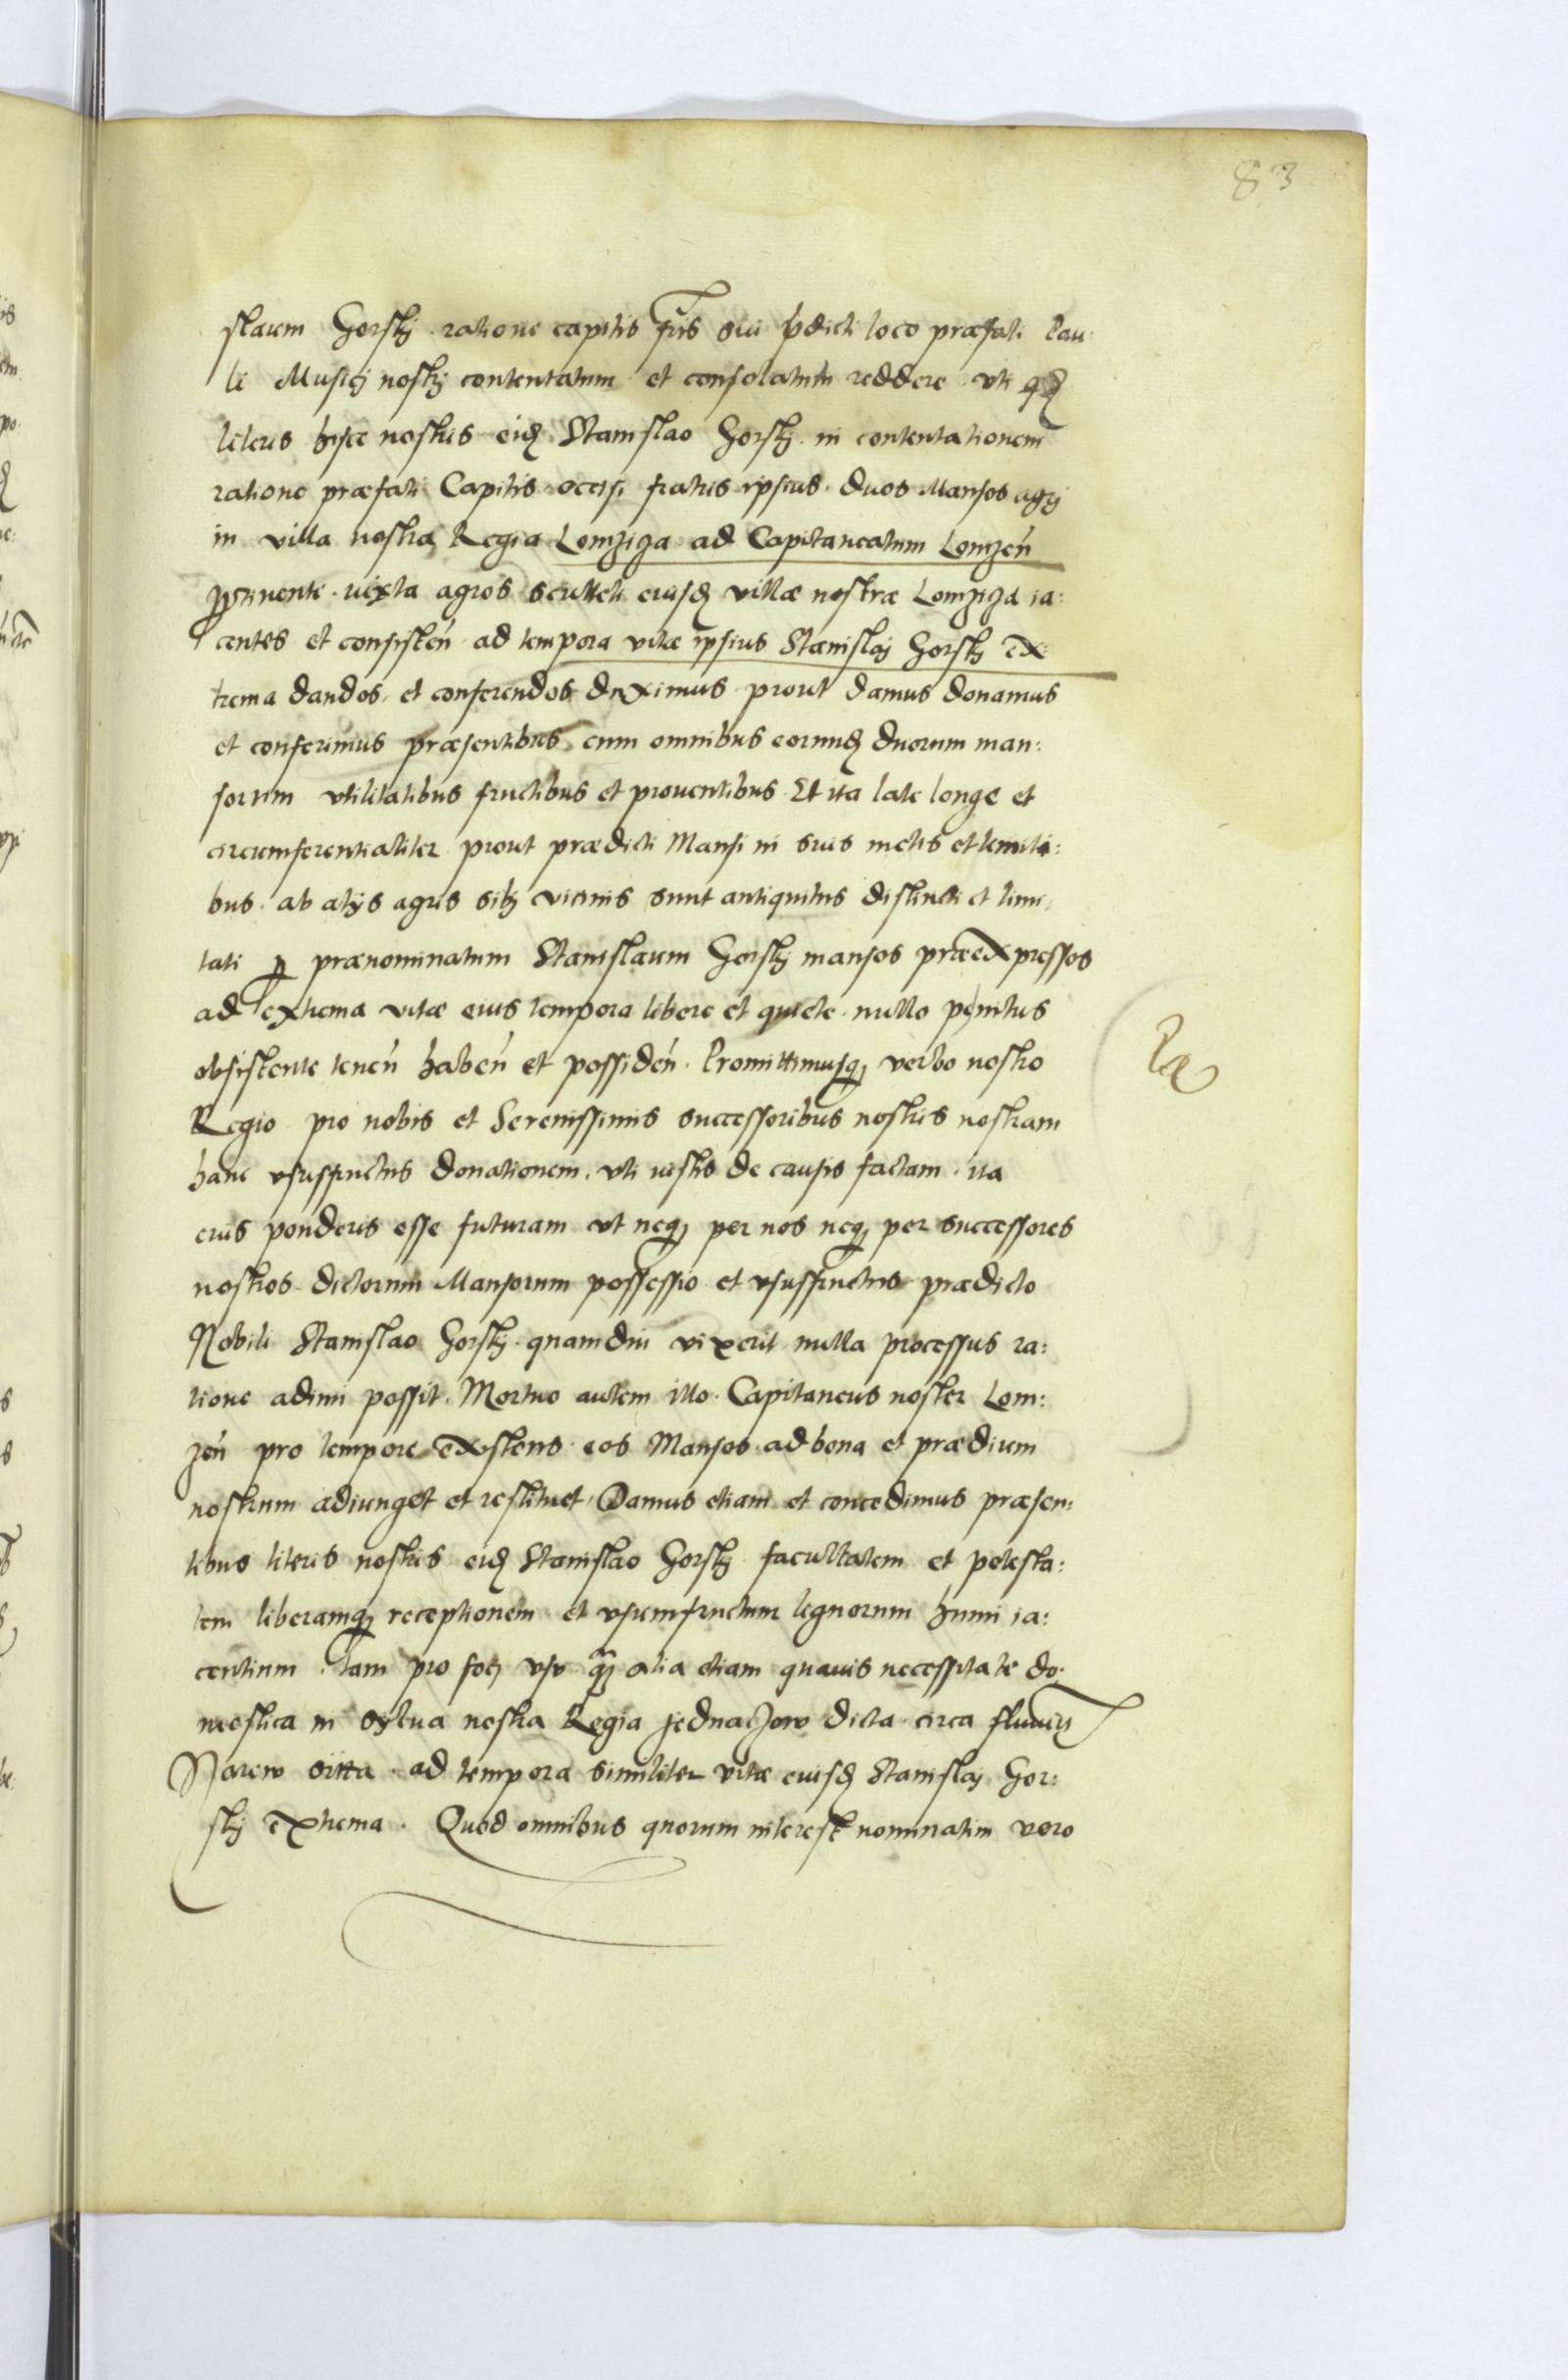 83
slaum Gorskij ratione capitis fris sui pdicti loco præfati Pau:
li Musicj nostrj contentatum et consolatum reddere uti qd
literis hisce nostris eidẽ Stanislao Gorskj in contentationem
ratione præfati Capitis occisi fratris ipsius duos Mansos agrj
in villa nostra Regia Lomziza ad Capitaneatum Lomzeń
ptinente iuxta agros sculteti eiusdẽ villæ nostræ Lomziza ia:
centes et consisteń ad tempora vitæ ipsius Stanislaj Gorskj ex
trema dandos et conferendos duximus prout damus donamus
et conferimus præsentibus cum omnibus eorundẽ duorum man:
sorum vtilitatibus fructibus et prouentibus Et ita late longe et
circumferentialiter prout prædicti Mansi in suis metis et limiti:
bus ab alijs agris sibj vicinis sunt antiquitus distincti et limi:
tati p prænominatum Stanislaum Gorskj mansos præexpressos
ad extrema vitæ eius tempora libere et quiete nullo penitus
obsistente teneń habeń et possideń. Promittimusq verbo nostro
Regio pro nobis et Serenissimis successoribus nostris nostram
hanc vsusfructus donationem vti iustis de causis factam ita
eius ponderis esse futuram vt neq per nos neq per successores
nostros dictorum Mansorum possessio et vsusfructus prædicto
Nobili Stanislao Gorskj quamdiu vixerit nulla processus ra:
tione adimi possit. Mortuo autem illo Capitaneus noster Lom:
zeń pro tempore existens eos Mansos ad bona et prædium
nostrum adiunget et restituet. Damus etiam et concedimus præsen:
tibus literis nostris eidẽ Stanislao Gorskj facultatem et potesta:
tem liberamq receptionem et vsumfructum lignorum humi ia:
centium tam pro focj vsu qã alia etiam quauis necessitate do:
mestica in sylua nostra Regia Jednaczow dicta circa fluuiũ
Narew sitta ad tempora similiter vitæ eiusdẽ Stanislaj Gor:
skj extrema. Quod omnibus quorum interest nominatim vero